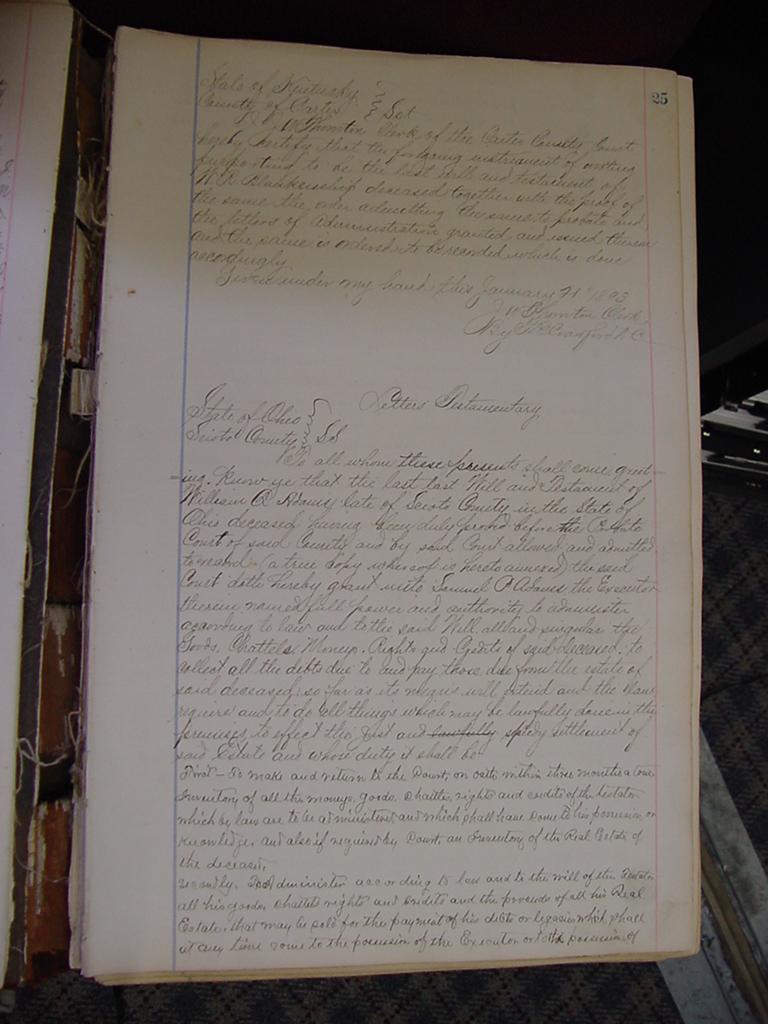 25
State of Kentucky
County of Carter } Sct
J W Thornton Clerk of the Carter County Court
hereby certify that the foregoing instrument of writing
purporting to be the last will and testament of
W. R. Blankenship deceased together with the proof of
the same the order admitting the same to probate and
the letters of Administration granted and issued therein
and the same is ordered to be recorded which is done
accordingly
Given under my hand this January 21 1893
J W Thornton Clerk
By Crawford D. C.
Letters Testamentary
State of Ohio
Scioto County } SS
To all whom these presents shall come, greet-
ing. Know ye that the last last Will and Testament of
William Q. Adams late of Scioto County in the State of
Ohio deceased having been duly proved before the Probate
Court of said County and by said Court allowed and admitted
to record (a true copy whereof is hereto annexed) the said
Court doth hereby grant unto Samuel P Adams the Executor
therein named full power and authority to administer
according to law and to the said Will, all and singular the
Goods, Chattels Moneys, Rights and Credits of said deceased. to
collect all the debts due to and pay those due from the estate of
said deceased, so far as its means will extend and the Law
require and to do all things which may be lawfully done in the
premises to effect the just and lawfully speedy settlement of
said Estate and whose duty it shall be
First - To make and return to the Court, on oath, within three months a true
Inventory of all the moneys, goods, chattles, rights and credits of the testator
which by law are to be administered and which shall have come to his possession or
knowledge, and also if required by Court, an Inventory of the Real Estate of
the deceased.
Secondly. To Administer according to law and to the will of the Testator
all his goods, chattels rights and credits and the proceeds of all his Real
Estate, that may be sold for the payment of his debts or legacies which shall
at any time come to the possession of the Executor or to the possession of